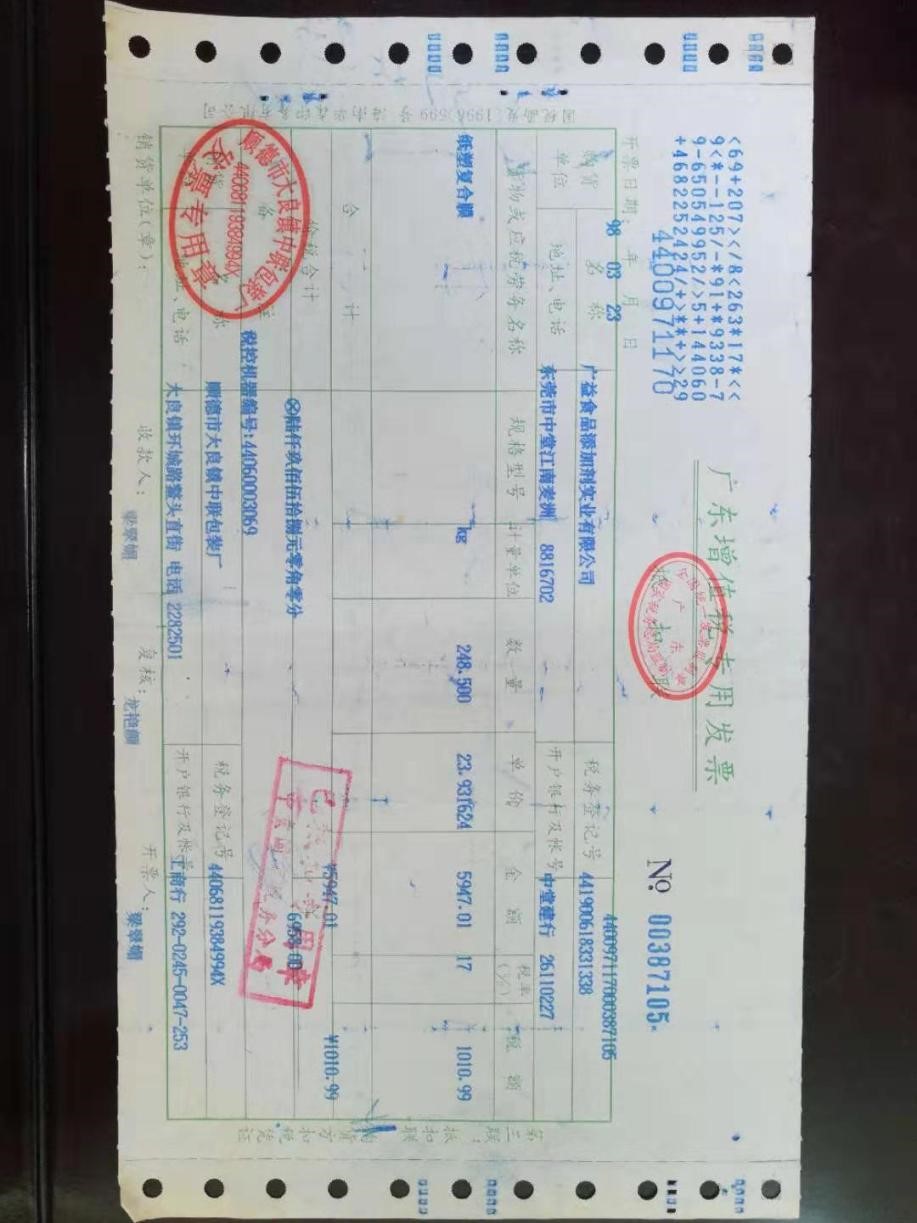 广东增值税专用发票
抵扣联
№ 00387105
<69+207></8<263*17*<<
9<*--125/-*91+*9338-7
9-6505499952/>5+144060
+4682252424/+>**+>>29
4400971170
440097117000387105
开票日期: 98 年 03 月 23 日
购货单位 名称 广益食品添加剂实业有限公司 税务登记号 441900618331338
地址、电话 东莞市中堂江南麦洲 8816702 开户银行及帐号 中堂建行 26110227
货物或应税劳务名称 规格型号 计量单位 数量 单价 金额 税率(%) 税额
纸塑复合袋 KG 248.500 23.931624 5947.01 17 1010.99
合计 ¥5947.01 ¥1010.99
价税合计 ⊗陆仟玖佰伍拾捌元零角零分 6958.00
备注 税控机器编号:44060003069
销货单位 名称 顺德市大良镇中联包装厂 税务登记号 44068119384994X
地址、电话 大良镇环城路鳌头直街 电话 2282501 开户银行及帐号 工商行 292-0245-0047-253
销货单位(章): 收款人: 梁翠媚 复核: 龙艳颜 开票人: 梁翠媚
第三联:抵扣联 购货方扣税凭证
顺德市大良镇中联包装厂
44068119384994X
发票专用章
全国统一发票监制章
广东
国家税务总局监制